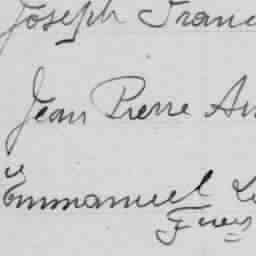 Joseph Franc
Jean Pierre Au
Emmanuel Le